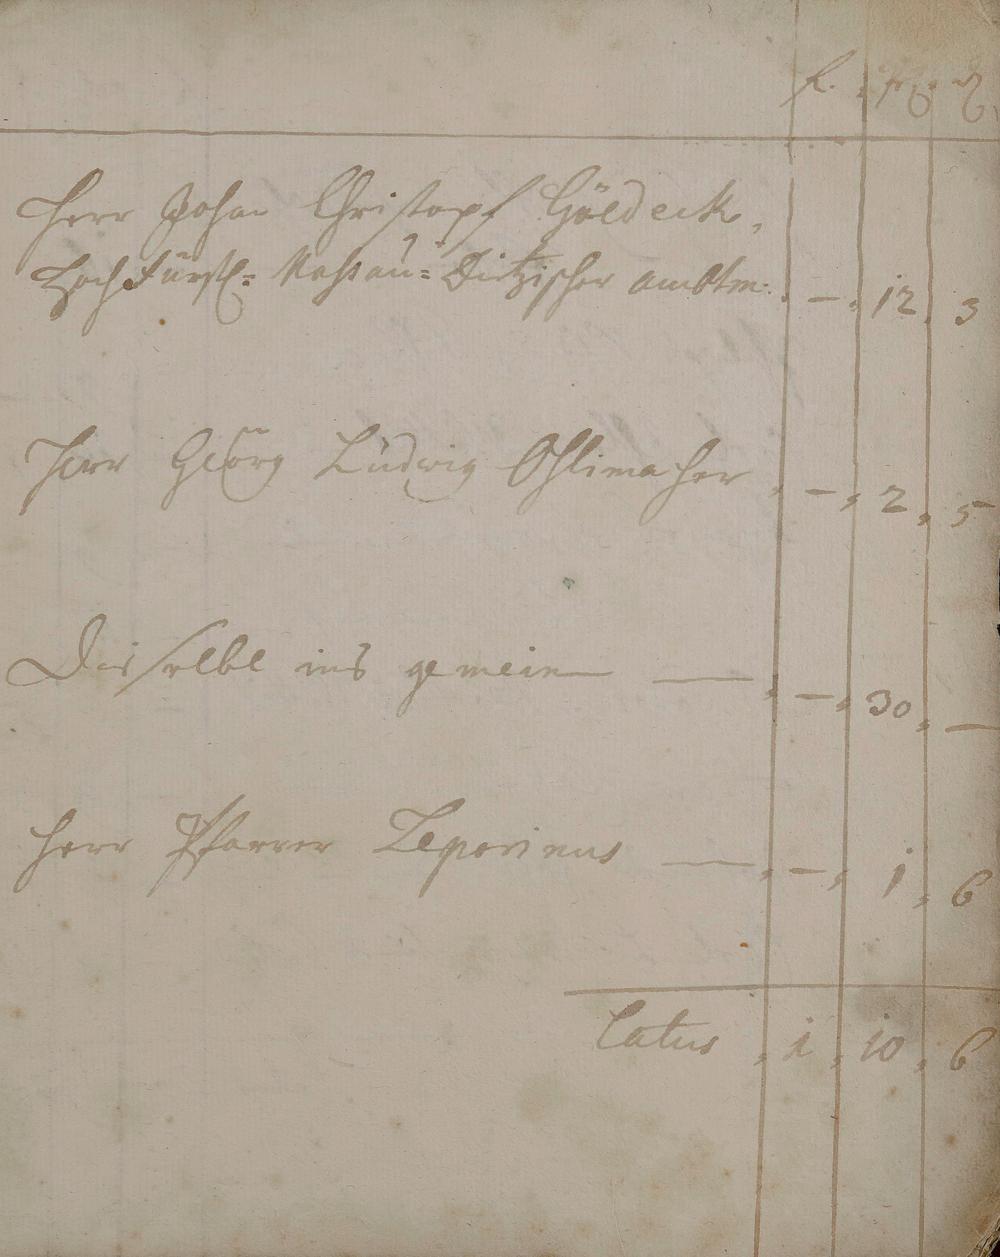 f. alb. ₰
Herr Johan Christopf Göldeck,
HochFürstl= Nassau=Dietzischer ambtm: . — . 12 . 3
Herr Georg Ludwig Ohlimacher . — . 2 . 5
Dasselbe ins gemein — . — . 30 . —
Herr Pfarrer Leporinus — . — . 1 . 6
Latus . 1 . 10 . 6